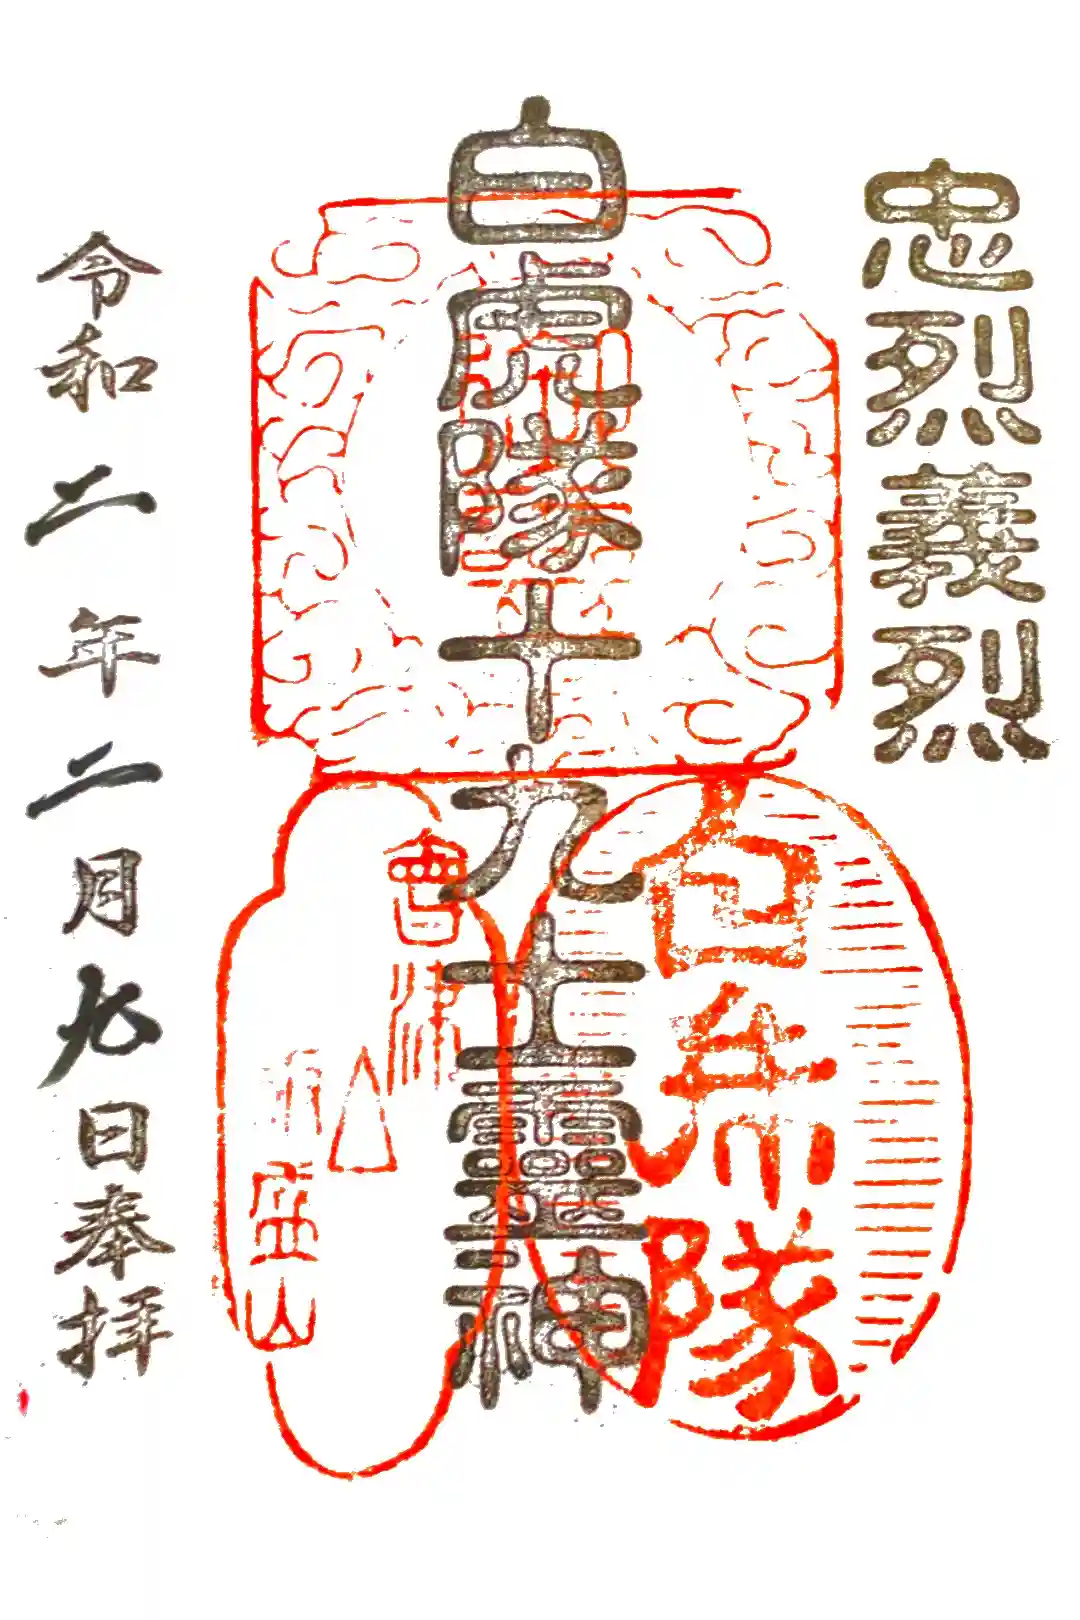 忠烈義烈
白虎隊十九士靈神
令和二年二月九日奉拝
白虎隊
會津
飯盛山